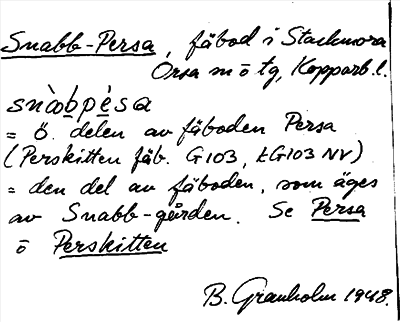 Snabb-Persa, fäbod i Stackmora
Orsa sn ö tg, Kopparb. l.
snàbpèsa
= ö. delen av fäboden Persa
(Perskitten fäb. G103, tG103 NV)
= den del av fäboden, som äges
av Snabb-gården. Se Persa
o Perskitten
B. Granholm 1948.